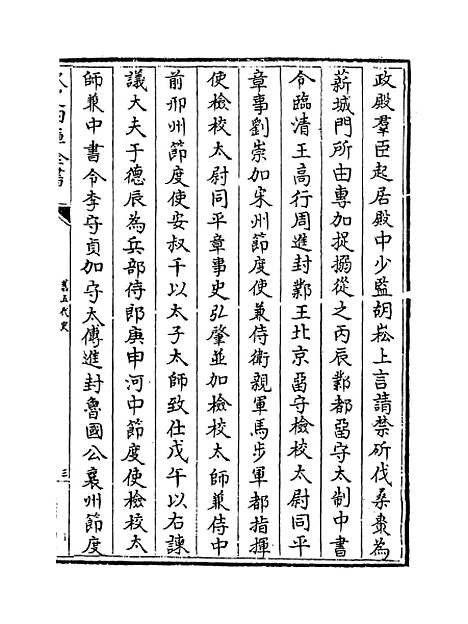 政殿羣臣起居殿中少監胡崧上言請禁斫伐桑棗為
薪城門所由專加捉搦從之丙辰鄴都留守太制中書
令臨清王高行周進封鄴王北京留守檢校太尉同平
章事劉崇加宋州節度使兼侍衛親軍馬步軍都指揮
使檢校太尉同平章事史弘肇並加檢校太師兼侍中
前邢州節度使安叔千以太子太師致仕戊午以右諫
議大夫于德辰為兵部侍郎庚申河中節度使檢校太
師兼中書令李守貞加守太傅進封魯國公襄州節度
舊五代史
三